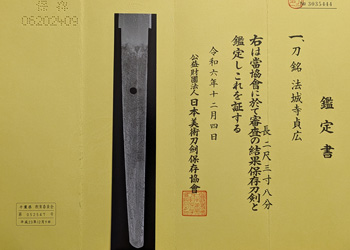 鑑定書
一、刀 銘 法城寺貞広
長二尺三寸八分
右は當協會に於て審査の結果保存刀剣と
鑑定しこれを証する
令和六年十二月四日
公益財団法人 日本美術刀剣保存協會
№ 3035444
保存
06202409